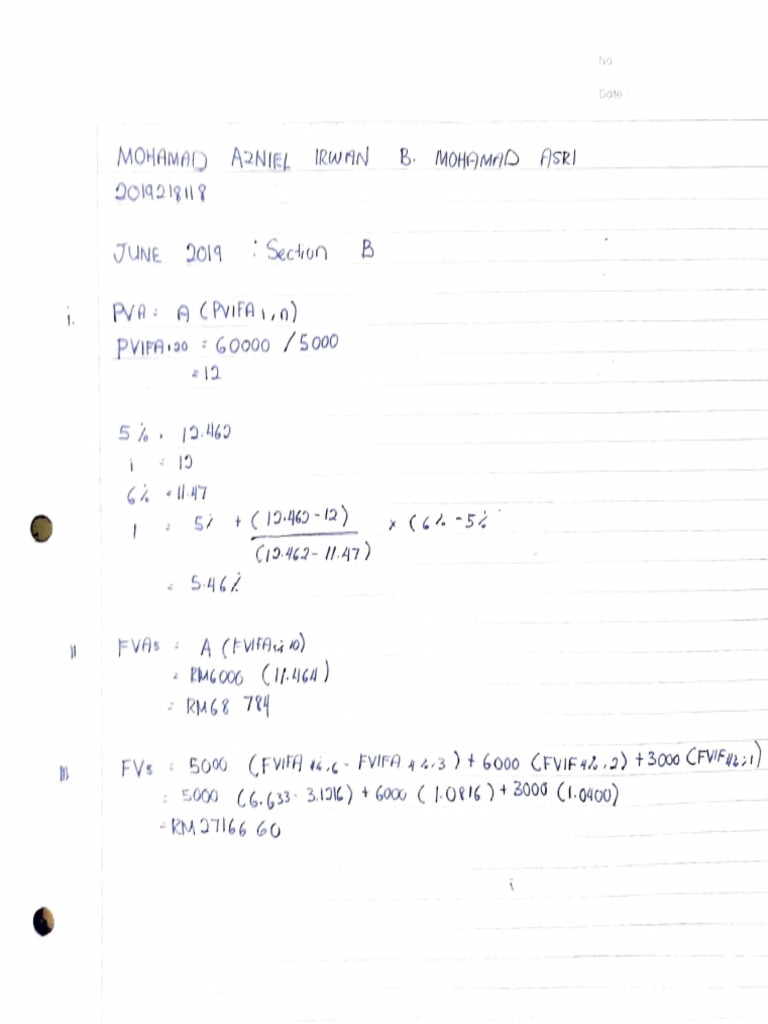 No
Date:
MOHAMAD AZNIEL IRWAN B. MOHAMAD ASRI
2019218118
JUNE 2019 : Section B
i. PVA = A (PVIFA i, n)
PVIFA i, 20 = 60000 / 5000
= 12
5% = 12.462
i = 12
6% = 11.47
i = 5% + (12.462 - 12) / (12.462 - 11.47) x (6% - 5%
= 5.46%
ii FVAs = A (FVIFA i, 10)
= RM6000 (11.464)
= RM68 784
iii FVs = 5000 (FVIFA 4%, 6 - FVIFA 4%, 3) + 6000 (FVIF 4%, 2) + 3000 (FVIF 4%, 1)
= 5000 (6.633 - 3.1216) + 6000 (1.0816) + 3000 (1.0400)
= RM27166 60
i